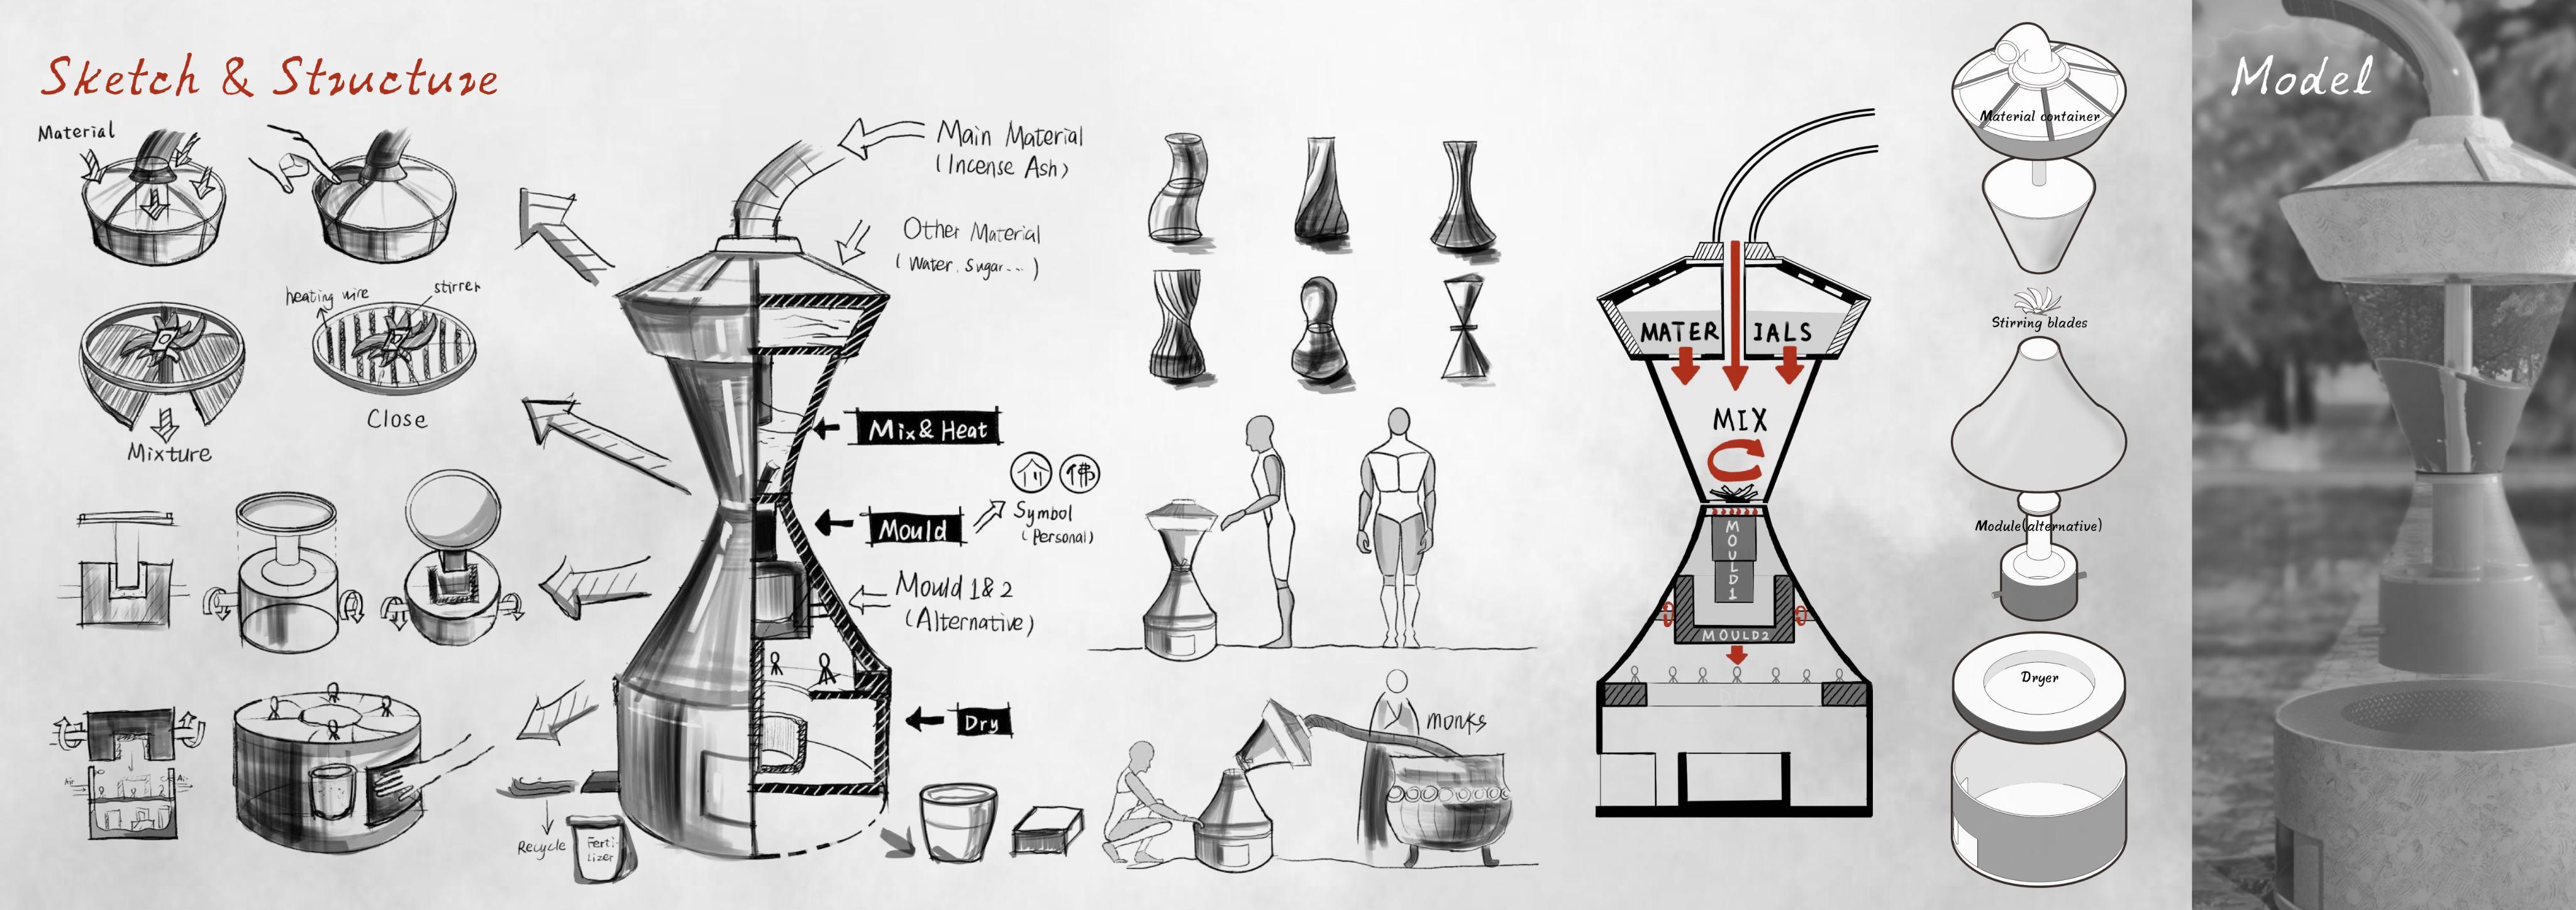 Sketch & Structure
Material
heating wire
stirrer
Close
Mixture
Recycle
Ferti-
Lizer
Main Material
(Incense Ash)
Other Material
(Water, Sugar...)
Mix & Heat
Mould
佛
Symbol
(Personal)
Mould 1 & 2
(Alternative)
Dry
monks
MATERIALS
MIX
MOULD1
MOULD2
Material container
Stirring blades
Module(alternative)
Dryer
Model